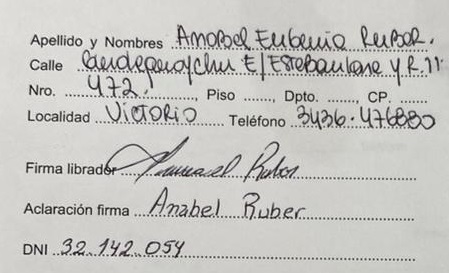 Apellido y Nombres Anabel Eugenia Ruber.
Calle Gualeguaychu E/ Estebanlare y R. 11
Nro. 472, Piso ......, Dpto. ......, CP. ......
Localidad Victoria Teléfono 3436-476880
Firma librador Anabel Ruber
Aclaración firma Anabel Ruber
DNI 32.142.054